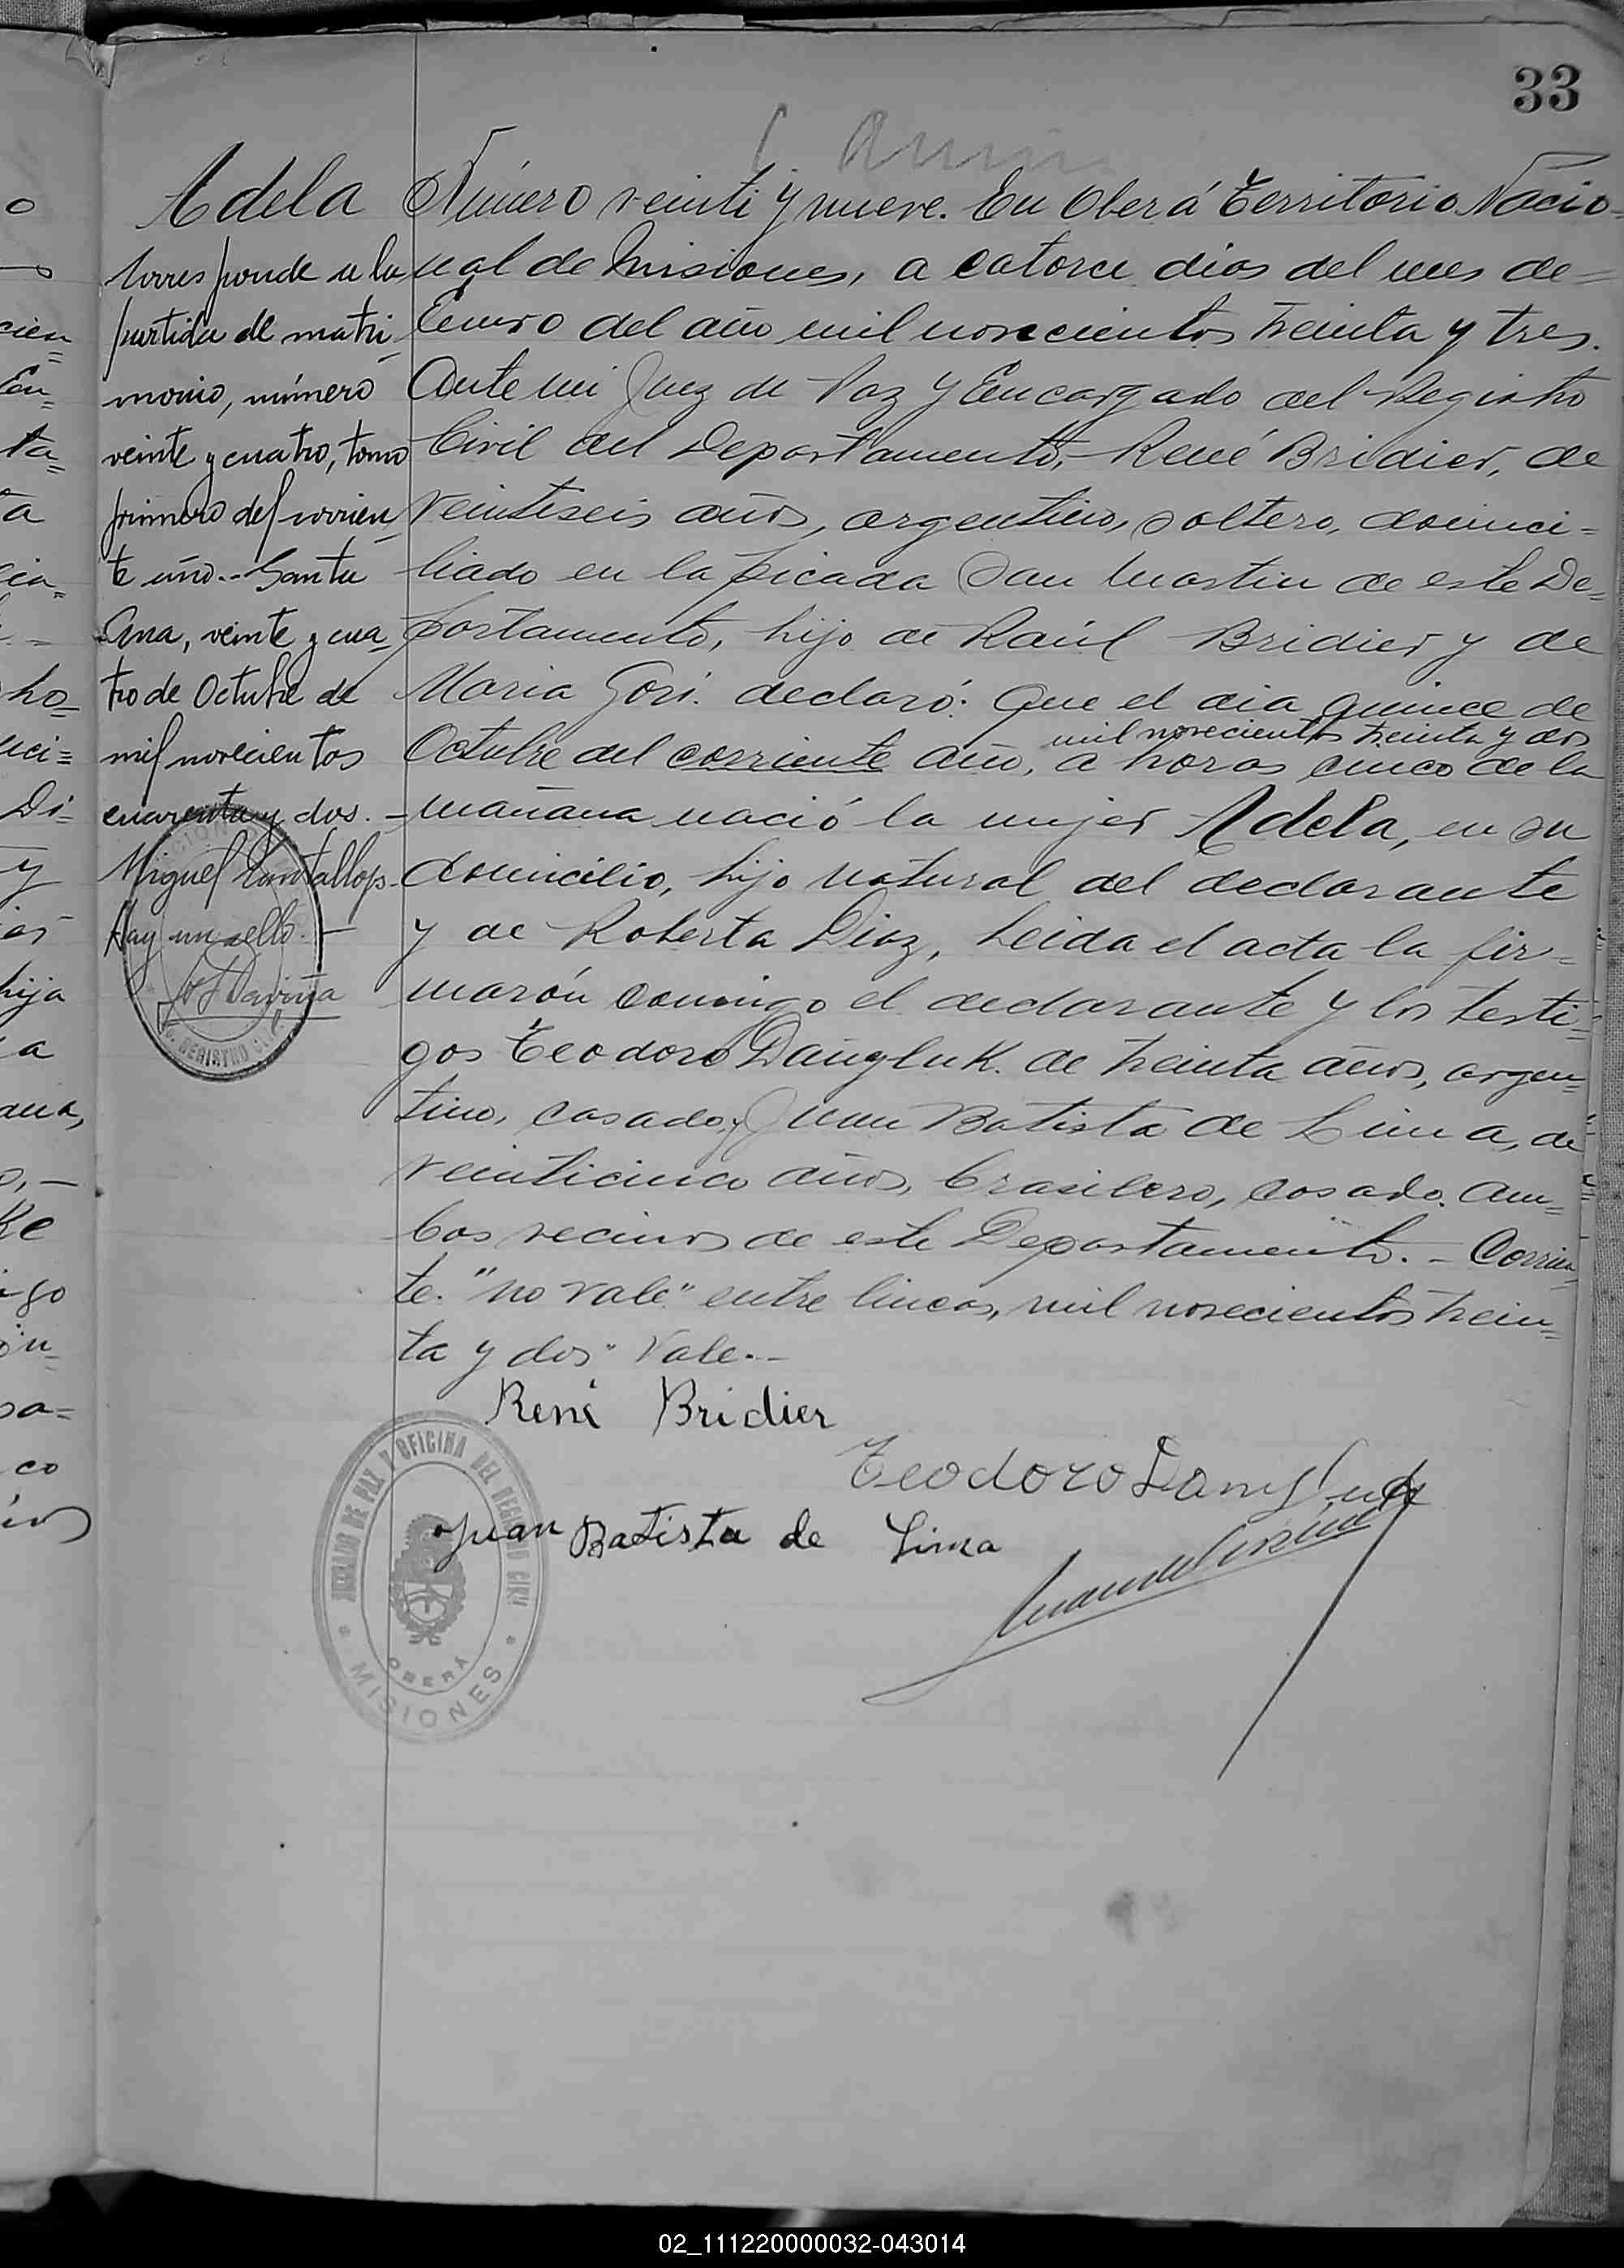 33
Adela
Corresponde a la
partida de matri-
monio, número
veinte y cuatro, tomo
primero del corrien-
te año.- Santa
Ana, veinte y cua-
tro de Octubre de
mil novecientos
cuarenta y dos. -
Miguel
Hay un sello. -
REGISTRO CIVIL
Número veinti y nueve. En Oberá Territorio Nacio-
nal de Misiones, a catorce dias del mes de
Enero del año mil novecientos treinta y tres.
Ante mi Juez de Paz y Encargado del Registro
Civil del Departamento, René Bridier, de
veintiseis años, argentino, soltero, domici-
liado en la picada San Martin de este De-
partamento, hijo de Raúl Bridier y de
Maria Gori. declaró: Que el dia quince de
mil novecientos treinta y dos
Octubre del corriente año, a horas cinco de la
mañana nació la mujer Adela, en su
domicilio, hijo natural del declarante
y de Roberta Diaz, Leida el acta la fir-
marón conmigo el declarante y los testi-
gos Teodoro Dangluk. de treinta años, argen-
tino, casado, y Juan Batista de Lima, de
veinticinco años, brasilero, casado. Am-
bos vecinos de este Departamento. - Corrien-
te. "no vale" entre lineas, mil novecientos trein-
ta y dos" Vale.-
René Bridier
Teodoro Dangluk
Juan Batista de Lima
JUZGADO DE PAZ Y OFICINA DEL REGISTRO CIVIL
OBERÁ
* MISIONES *
02_111220000032-043014